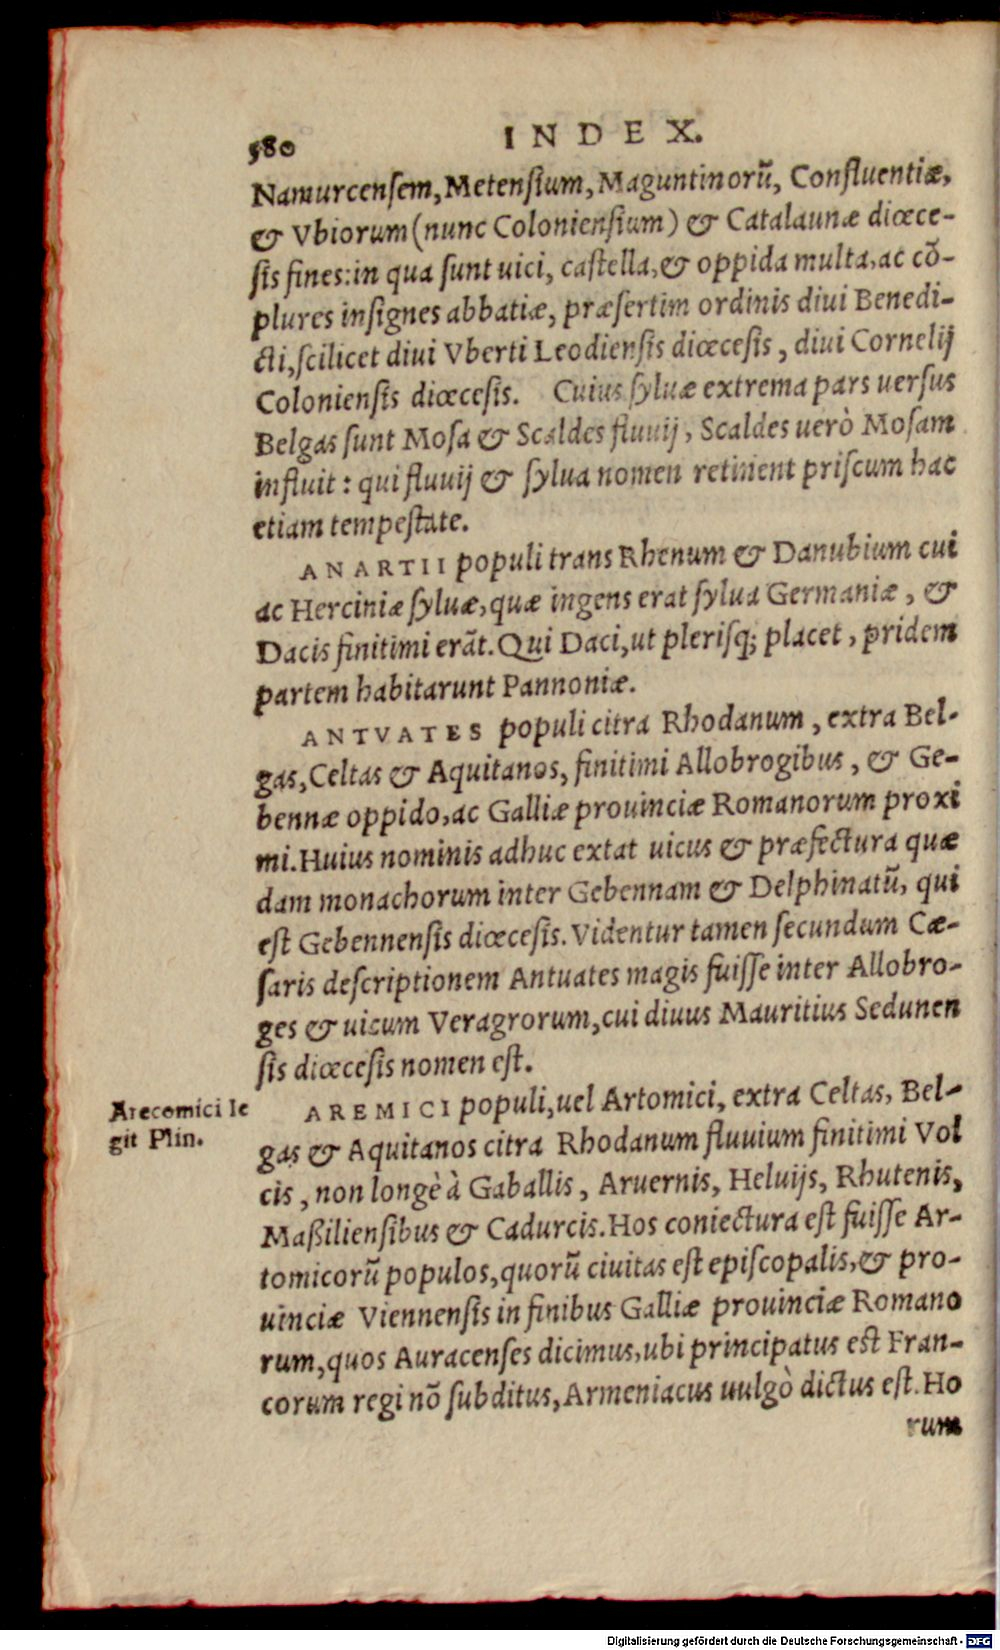 580
INDEX.
Namurcenſem, Metenſium, Maguntinorũ, Confluentiæ,
& Vbiorum (nunc Colonienſium) & Catalaunæ diœce-
ſis fines: in qua ſunt uici, caſtella, & oppida multa, ac cõ-
plures inſignes abbatiæ, præſertim ordinis diui Benedi-
cti, ſcilicet diui Vberti Leodienſis diœceſis, diui Cornelij
Colonienſis diœceſis. Cuius ſyluæ extrema pars uerſus
Belgas ſunt Moſa & Scaldes fluuij, Scaldes uerò Moſam
influit: qui fluuij & ſylua nomen retinent priſcum hac
etiam tempeſtate.
ANARTII populi trans Rhenum & Danubium cui
ac Herciniæ ſyluæ, quæ ingens erat ſylua Germaniæ, &
Dacis finitimi erãt. Qui Daci, ut pleriſq; placet, pridem
partem habitarunt Pannoniæ.
ANTVATES populi citra Rhodanum, extra Bel-
gas, Celtas & Aquitanos, finitimi Allobrogibus, & Ge-
bennæ oppido, ac Galliæ prouinciæ Romanorum proxi
mi. Huius nominis adhuc extat uicus & præfectura quæ
dam monachorum inter Gebennam & Delphinatũ, qui
eſt Gebennenſis diœceſis. Videntur tamen ſecundum Cæ-
ſaris deſcriptionem Antuates magis fuiſſe inter Allobro-
ges & uicum Veragrorum, cui diuus Mauritius Sedunen
ſis diœceſis nomen eſt.
Arecomici le
git Plin.
AREMICI populi, uel Artomici, extra Celtas, Bel-
gas & Aquitanos citra Rhodanum fluuium finitimi Vol
cis, non longè à Gaballis, Aruernis, Heluijs, Rhutenis,
Maßilienſibus & Cadurcis. Hos coniectura eſt fuiſſe Ar-
tomicorũ populos, quorũ ciuitas eſt epiſcopalis, & pro-
uinciæ Viennenſis in finibus Galliæ prouinciæ Romano
rum, quos Auracenſes dicimus, ubi principatus eſt Fran-
corum regi nõ ſubditus, Armeniacus uulgò dictus eſt. Ho
rum
Digitalisierung gefördert durch die Deutsche Forschungsgemeinschaft - DFG